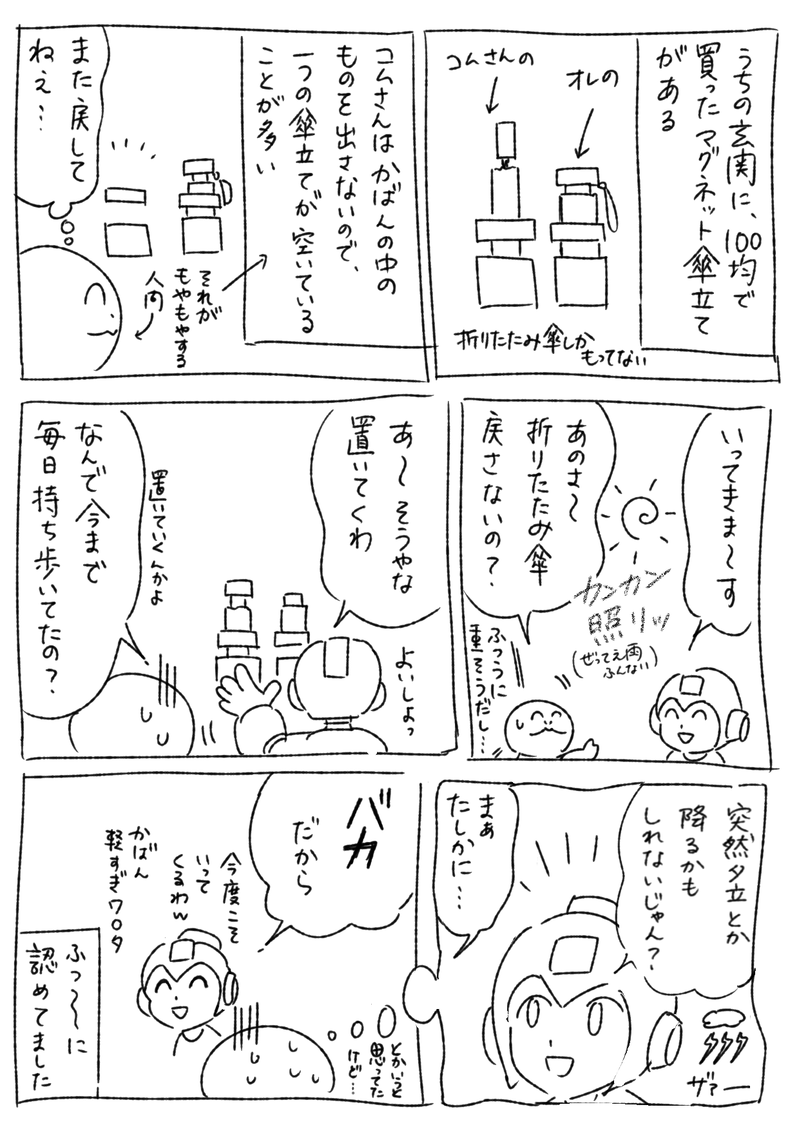 うちの玄関に、100均で
買ったマグネット傘立て
がある
コムさんの
オレの
折りたたみ傘しか
もってない
コムさんはかばんの中の
ものを出さないので、
一つの傘立てが空いている
ことが多い
それが
もやもやする
人間
また戻して
ねぇ…
いってきま〜す
カンカン
照リッ
(ぜってえ雨
ふんない)
あのさ〜
折りたたみ傘
戻さないの?
ふつうに
重そうだし…
あ〜そうやな
置いてくわ
よいしよっ
置いていくんかよ
なんで今まで
毎日持ち歩いてたの?
突然夕立とか
降るかも
しれないじゃん?
ザァー
まぁ
たしかに…
とかいうと
思ってた
けど…
バカ
だから
今度こそ
いって
くるわw
かばん
軽すぎワロタ
ふつ〜に
認めてました